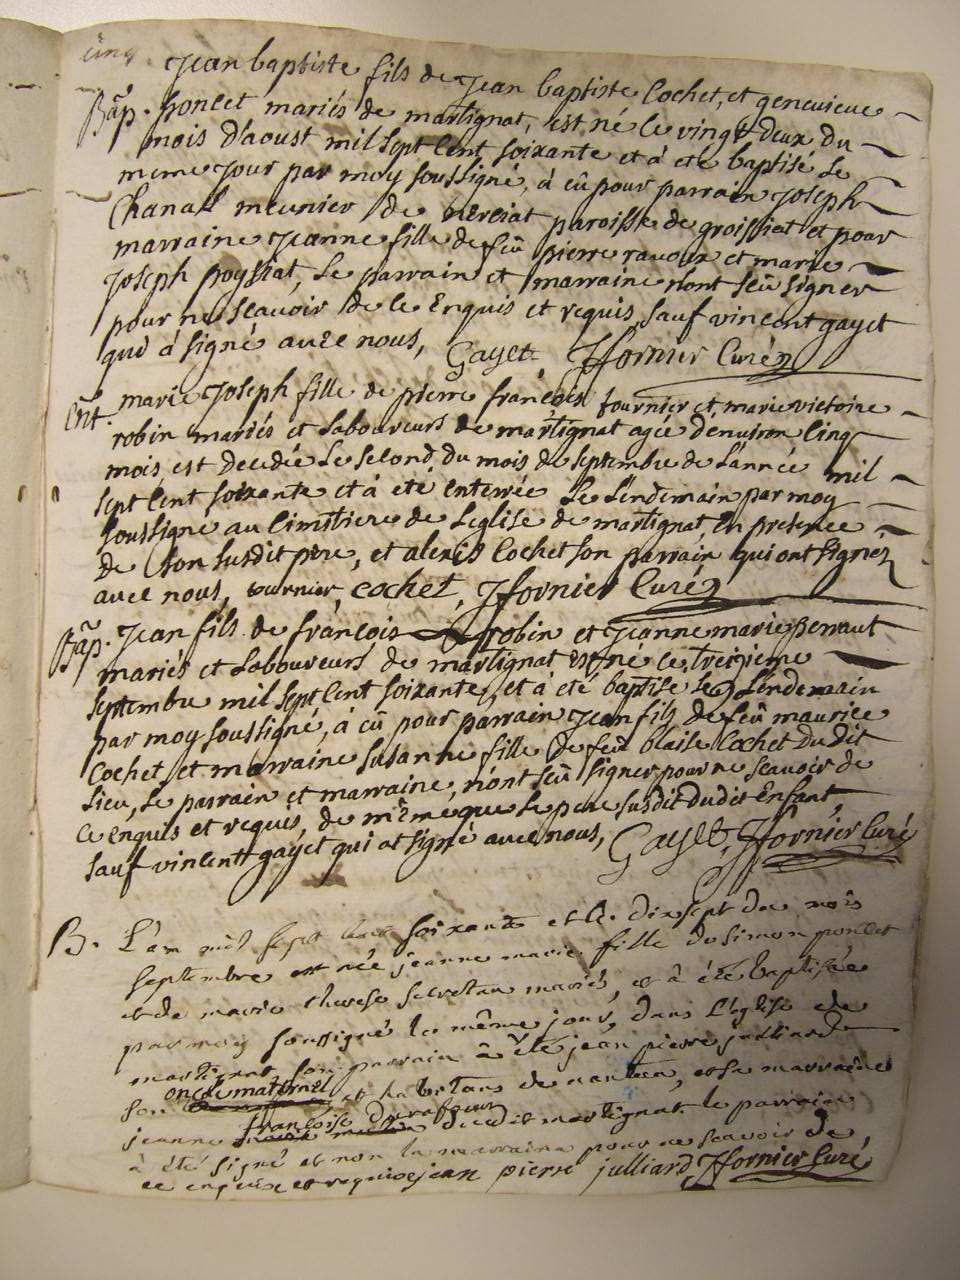 cinq
Jean baptiste fils de Jean baptiste Cochet, et genevieve
Bap. poncet mariés de martignat, est né le vingt deux du
mois d'aoust mil sept cent soixante et à eté baptisé le
meme jour par moy soussigné, à eû pour parrain Joseph
Chanal meunier de nerciat paroisse de groissiat et pour
marraine Jeanne fille de feû pierre ravoux et marie
Joseph poysiat, le parrain et marraine n'ont sceû signer
pour ne sçavoir de ce Enquis et requis, sauf vincent gayet
qui à signé avec nous, Gayet, Jfornier Curé
Ent. marie Joseph fille de pierre françois fournier et marie victoire
robin mariés et Laboureurs de martignat agée d'environ Cinq
mois est decedée le second du mois de septembre de L'année mil
sept cent soixante et à eté enterrée le Lendemain par moy
soussigné au Cimitiere de Leglise de martignat, En presence
de son susdit pere, et alexis Cochet son parrain qui ont signés
avec nous, tournier, cochet, Jfornier Curé
Bap. Jean fils de françois robin et Jeanne marie perraut
mariés et Laboureurs de martignat est né le treizieme
septembre mil sept cent soixante, et à été baptise le Lendemain
par moy soussigné, à eû pour parrain Jean fils de feû maurice
Cochet et marraine susanne fille de feû blaise Cochet du dit
Lieu, le parrain et marraine, n'ont sceû signer pour ne sçavoir de
ce enquis et requis, de même que le pere susdit dudit Enfant,
sauf vincent gayet qui at signé avec nous, Gayet, Jfornier Curé
B. L'an mil sept cent soixante et le dix sept du mois
septembre est née jeanne marie fille de simon poncet
et de marie therese secretan mariés, et à été baptisée
par moy soussigné le même jour, dans L'église de
martignat son parrain à été jean pierre julliard
oncle maternel
son et habitans de nantua, et sa marraine
françoise Durafour
jeanne dudit martignat. le parrain
à été signé et non la marraine pour ne sçavoir de
ce enquise et requise jean pierre julliard, Jfornier Curé,